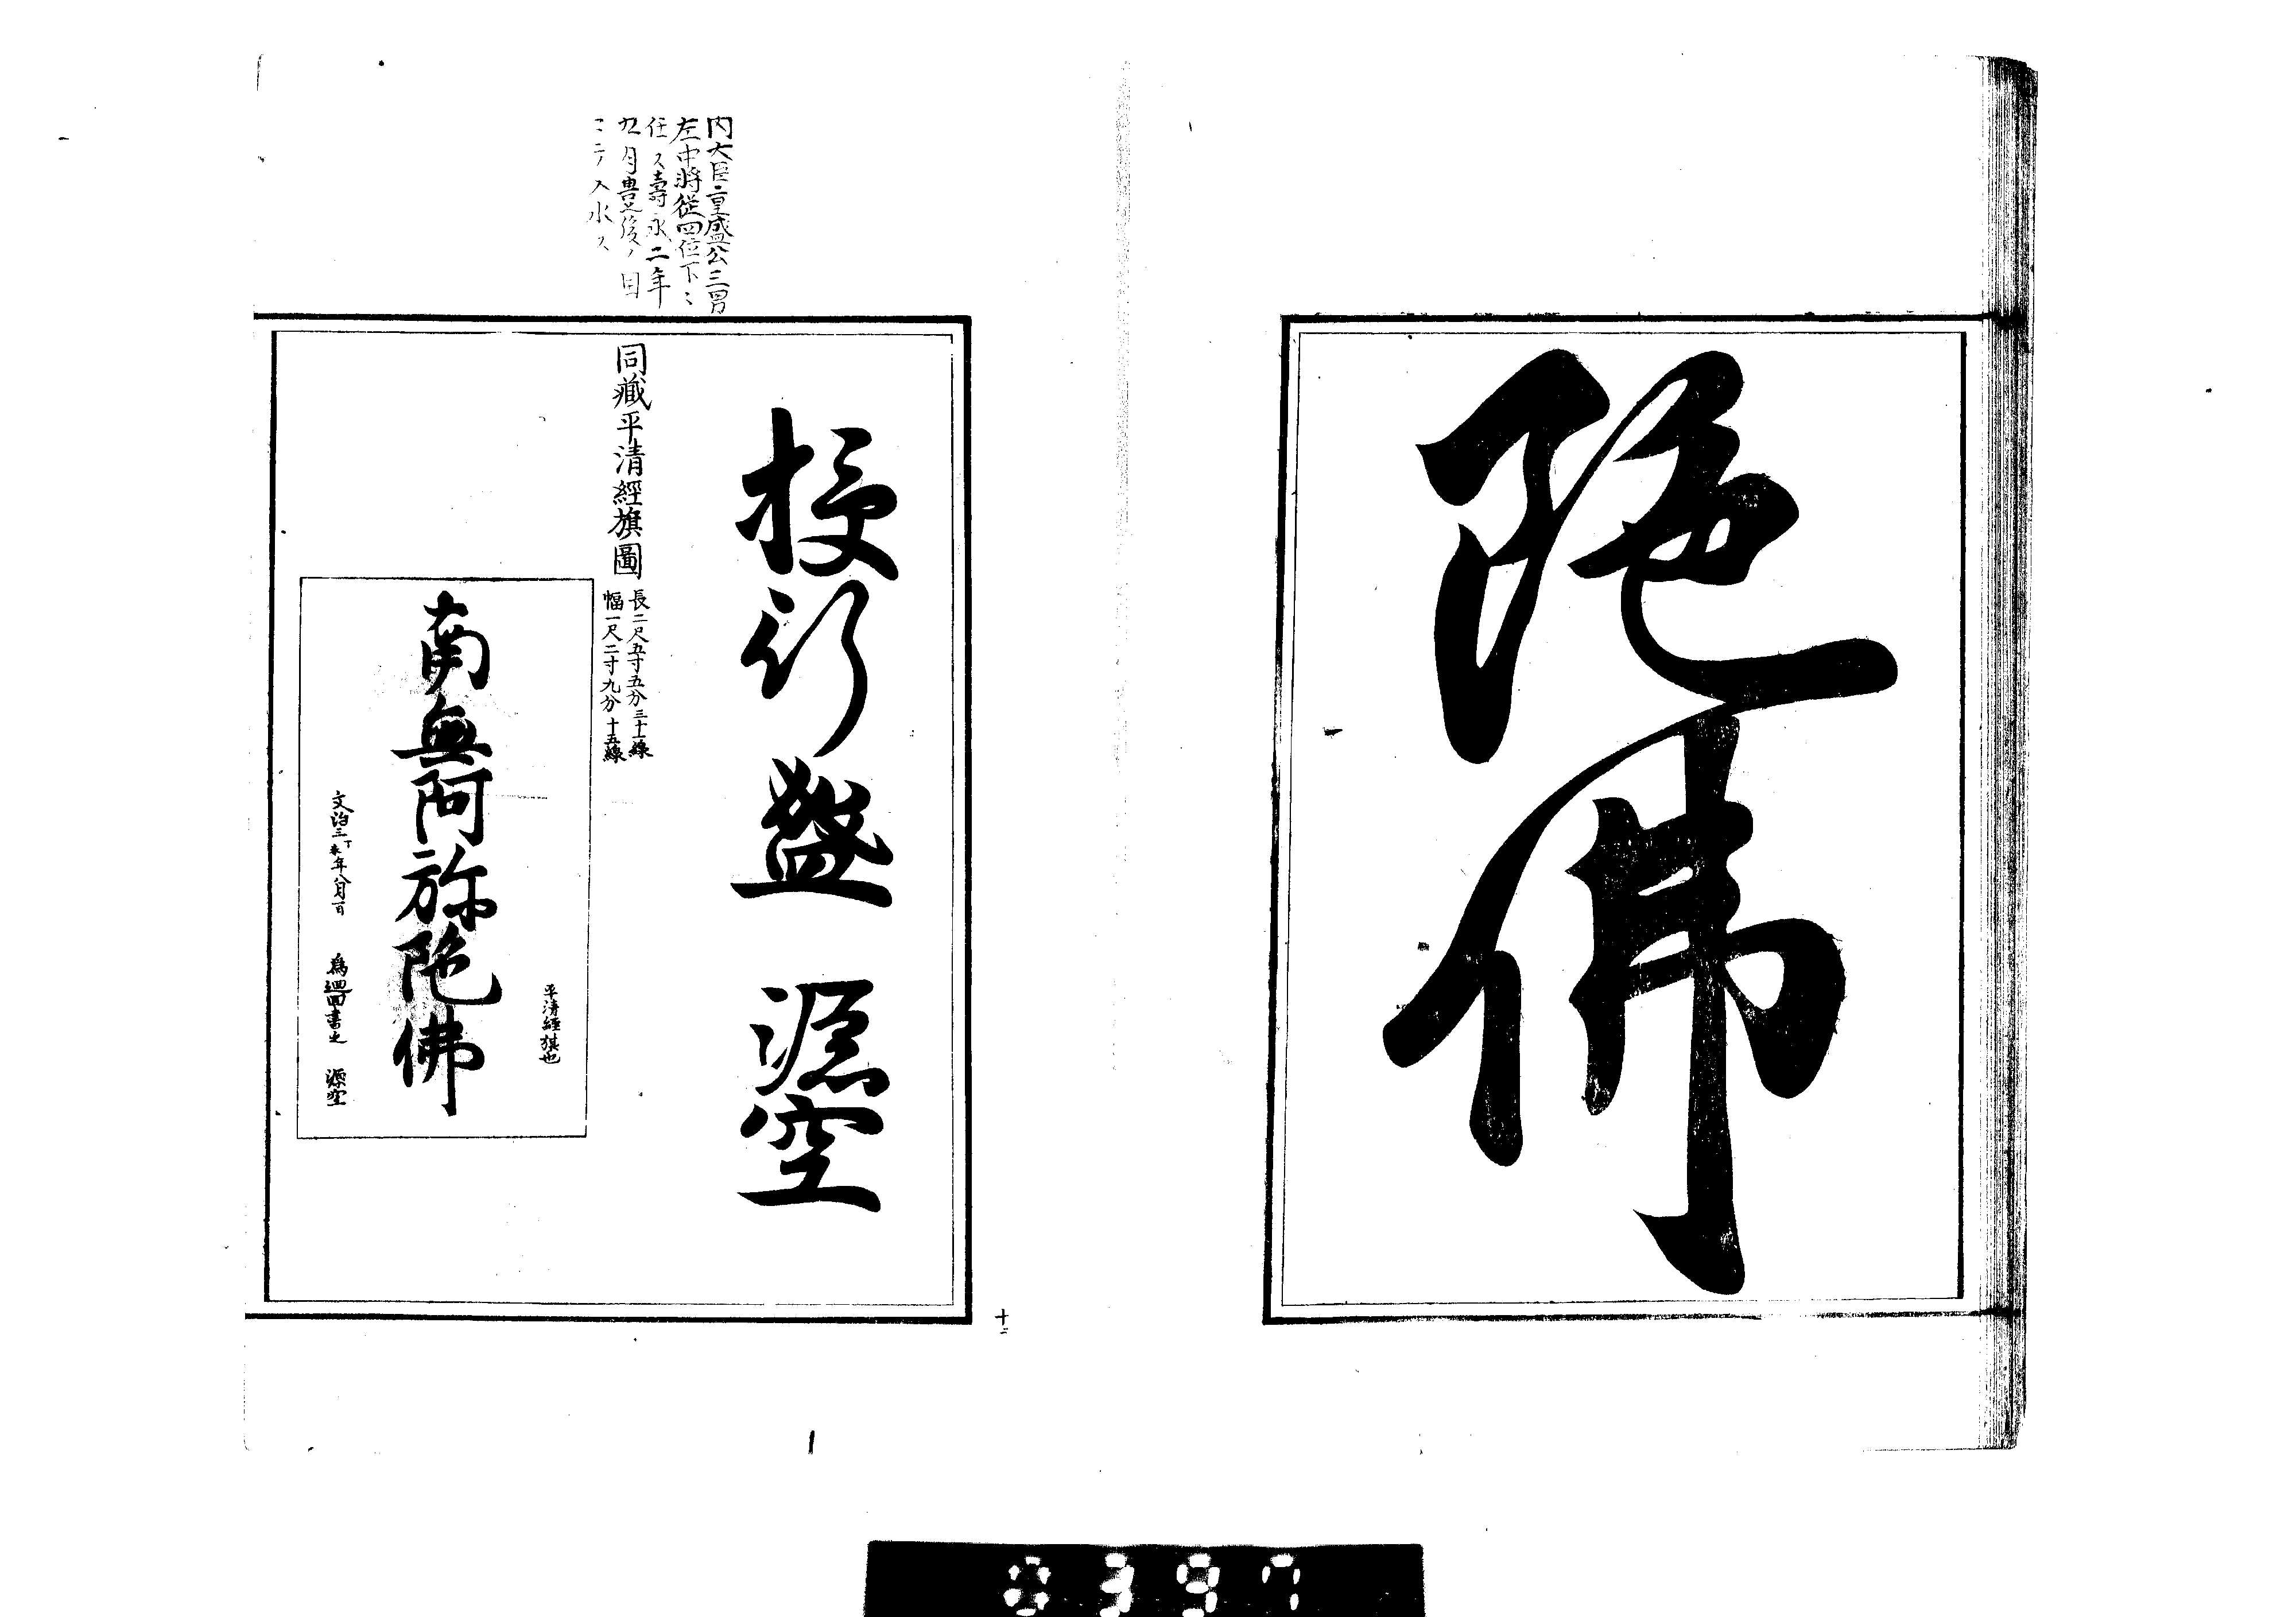 陀佛
内大臣重盛公三男
左中將従四位下ニ
任ス壽永二年
九月豊後ノ国
ニテ入水ス
授行盛 源空
同藏平清經旗圖
長二尺五寸五分三十線
幅一尺二寸九分十五線
平清經旗也
南無阿弥陀佛
文治三丁未年八月一日 為廻回書之 源空
十二
0397